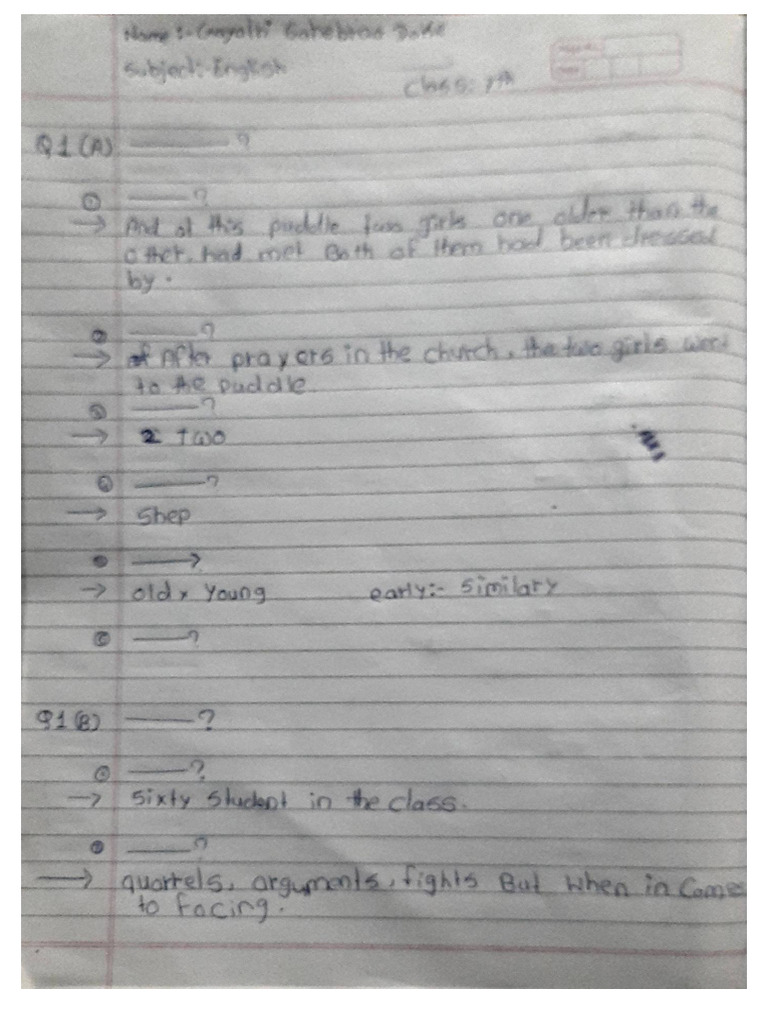 Name :- Gayatri Sahebrao
Subject:- English
Class: 7th
Q1(A) ———?
① ———?
→ And at this puddle two girls one older than the
other, had met Both of them had been dressed
by.
② ———?
→ After prayers in the church, the two girls went
to the puddle.
③ ———?
→ 2 two
④ ———?
→ Shep
⑤ ———>
→ old x young early:- Similary
⑥ ———?
Q1(B) ———?
① ———?
→ Sixty Student in the class.
② ———?
→ quarrels, arguments, fights But when in Comes
to facing.